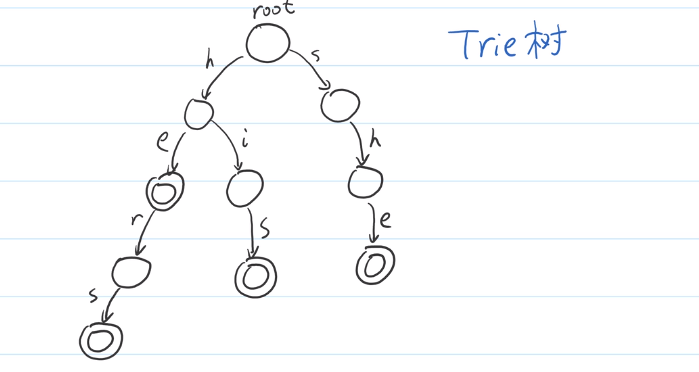 root
Trie树
h
s
e
i
h
r
s
e
s